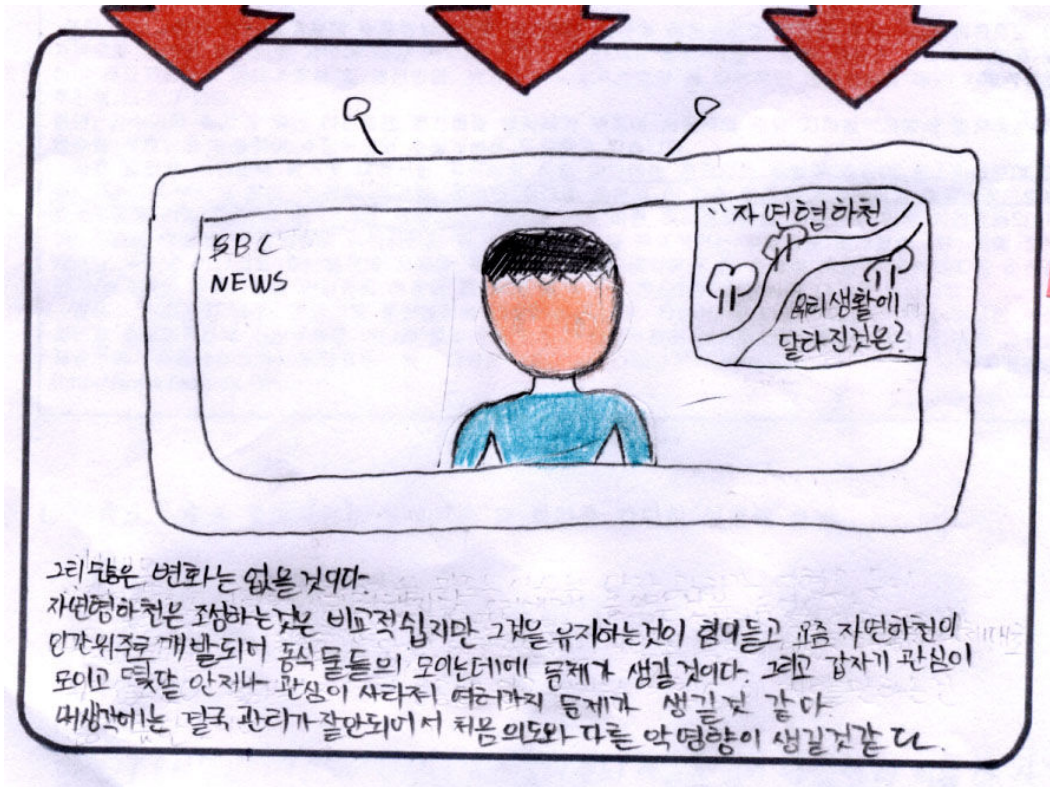 BBC
NEWS
"자연형하천
우리생활에
달라진것은?
그리 많은 변화는 없을것이다
자연형하천은 조성하는것은 비교적쉽지만 그것을 유지하는것이 힘이들고 요즘 자연하천이
인간위주로 개발되어 동식물들의 모이는데에 문제가 생길것이다. 그리고 갑자기 관심이
모이고 몇달 안지나 관심이 사라져 여러가지 문제가 생길것 같다
내생각에는 결국 관리가 잘안되어서 처음 의도와 다른 악영향이 생길것같다.